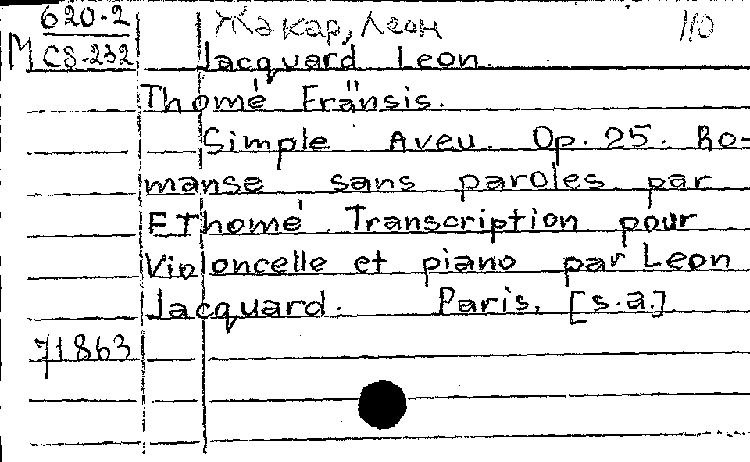 620-2 Жакар, Леон 110
M CS-232 Jacquard Leon.
Thomé Fränsis.
Simple Aveu. Op. 25. Ro-
manse sans paroles par
F Thomé Transcription pour
Violoncelle et piano par Leon
Jacquard. Paris. [s.a.]
71863